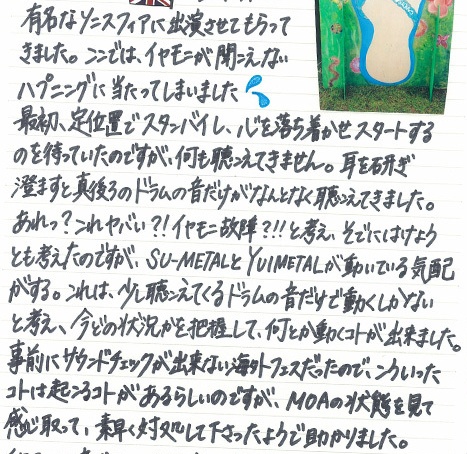 有名なソニスフィアに出演させてもらって
きました。ここでは、イヤモニが聞こえない
ハプニングに当たってしまいました
最初、定位置でスタンバイし、心を落ち着かせスタートする
のを待っていたのですが、何も聴こえてきません。耳を研ぎ
澄ますと真後ろのドラムの音だけがなんとなく聴こえてきました。
あれっ?これヤバい?!イヤモニ故障?!!と考え、そでににげよう
とも考えたのですが、SU-METALとYUIMETALが動いている気配
がする。これは、少し聴こえてくるドラムの音だけで動くしかない
と考え、今どの状況かを把握して、何とか動くコトが出来ました。
事前にサウンドチェックが出来ない海外フェスだったので、こういった
コトは起こるコトがあるらしいのですが、MOAの状態を見て
感じ取って、素早く対処して下さったようで助かりました。